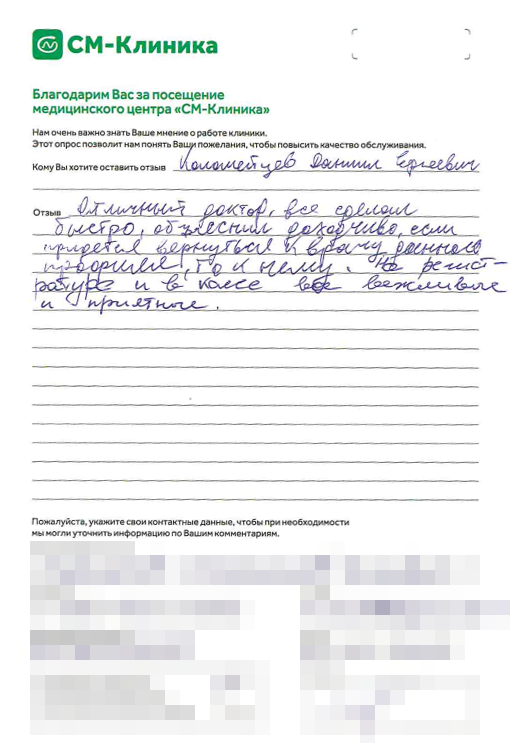 СМ-Клиника
Благодарим Вас за посещение
медицинского центра «СМ-Клиника»
Нам очень важно знать Ваше мнение о работе клиники.
Этот опрос позволит нам понять Ваши пожелания, чтобы повысить качество обслуживания.
Кому Вы хотите оставить отзыв Коломейцев Даниил Сергеевич
Отзыв Отличный доктор, все сделал
быстро, объяснил доходчиво, если
придется вернуться к врачу данного
профиля, то к нему. На регист-
ратуре и в кассе все вежливые
и приятные.
Пожалуйста, укажите свои контактные данные, чтобы при необходимости
мы могли уточнить информацию по Вашим комментариям.